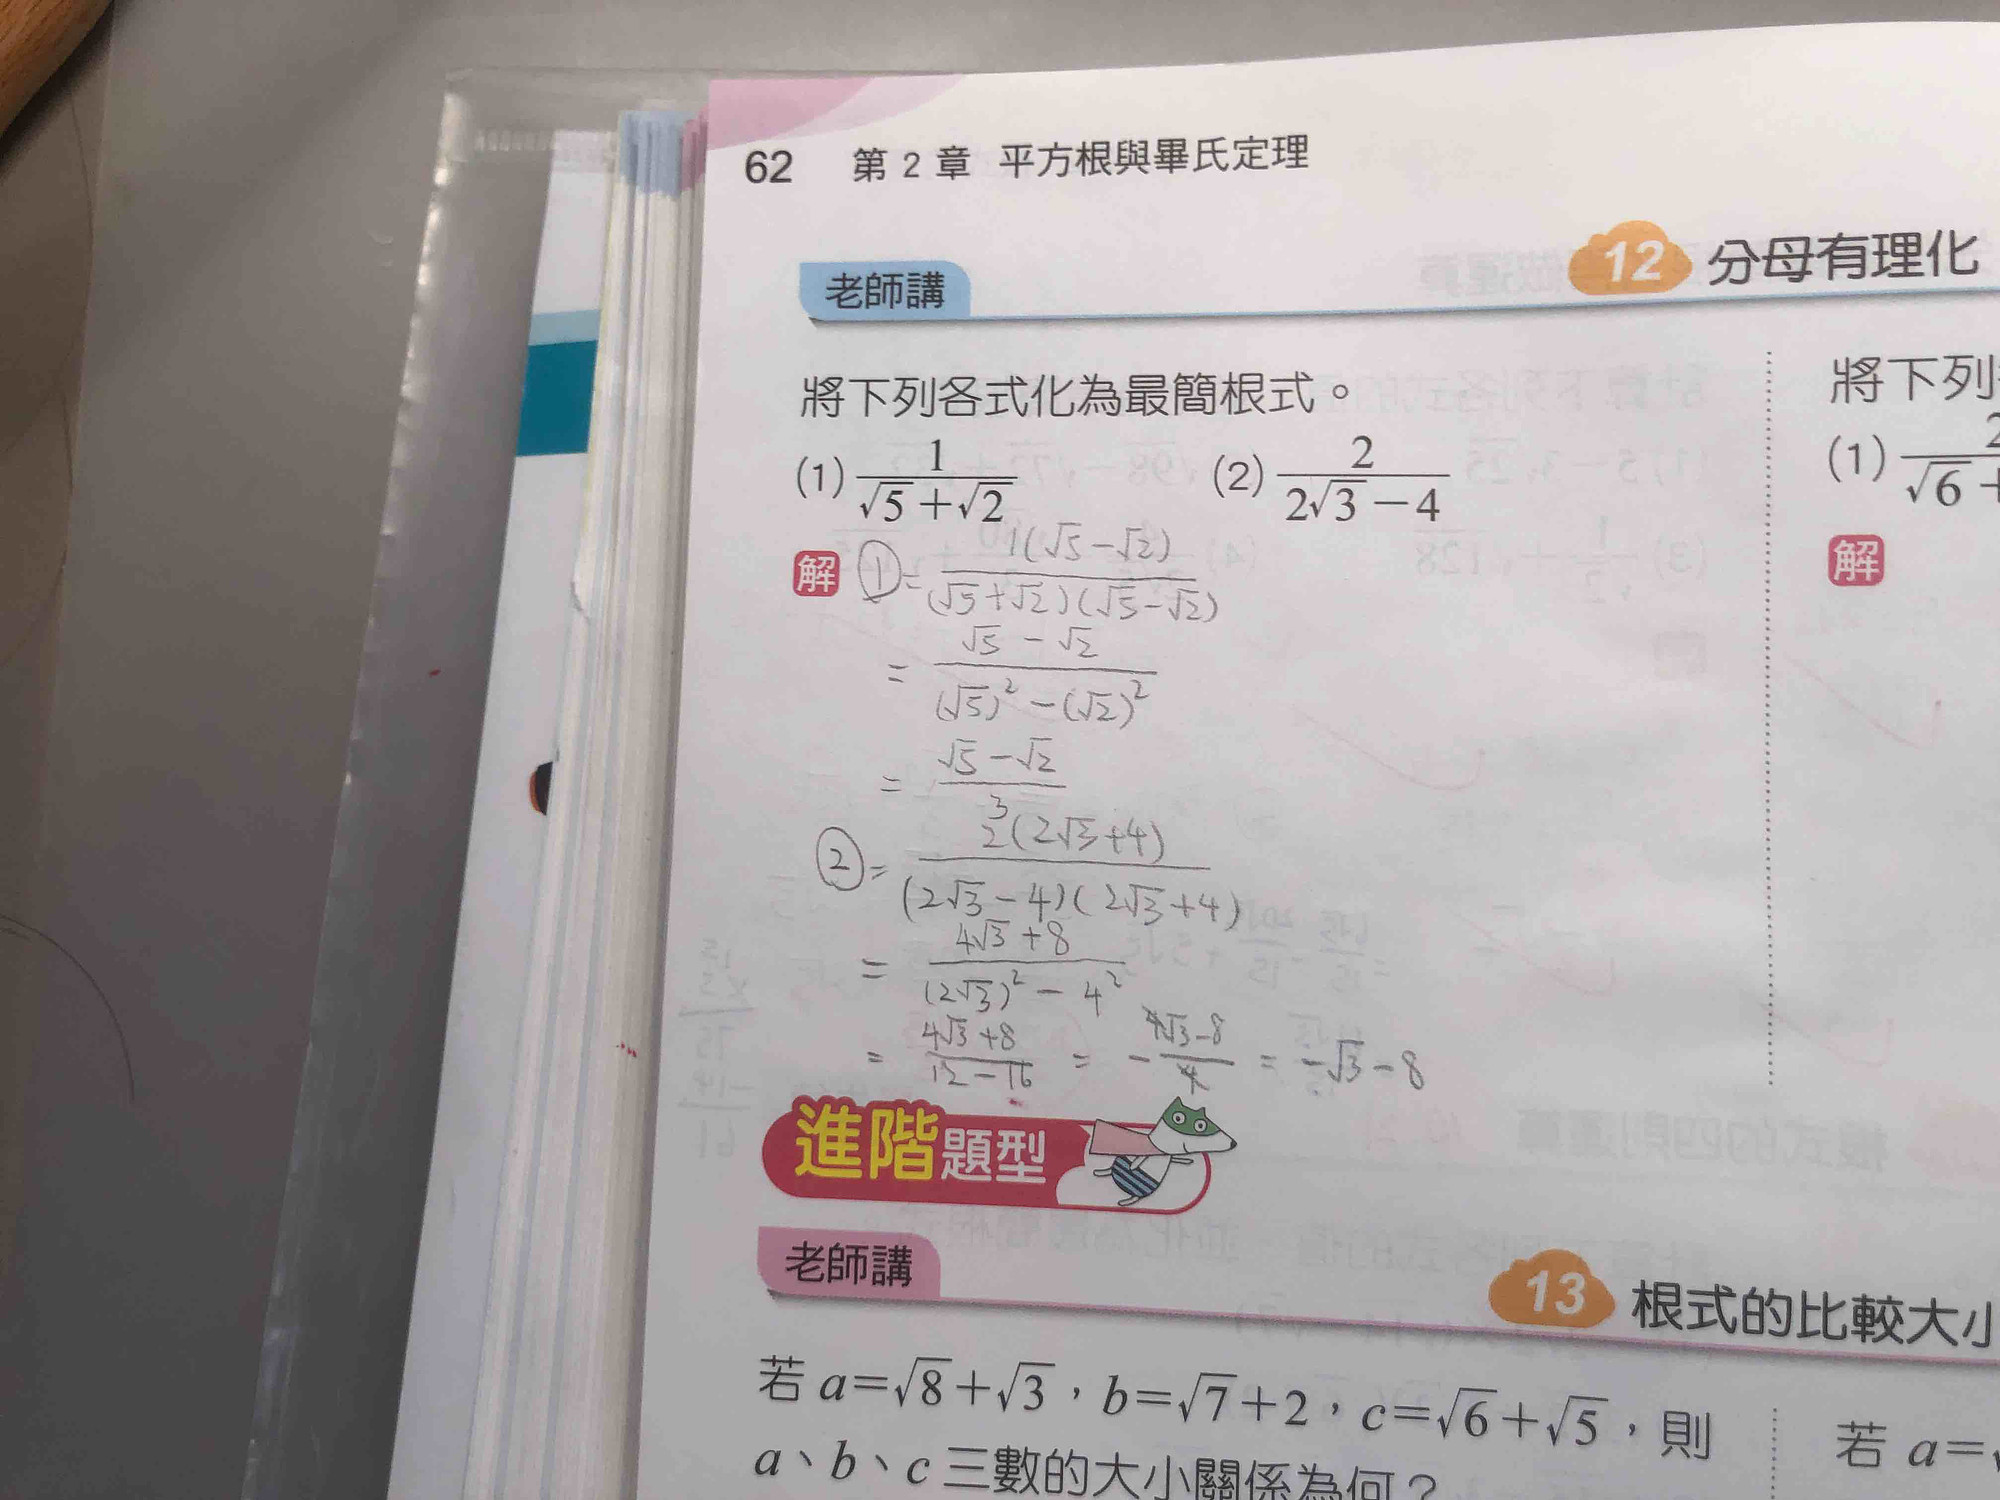 62 第 2 章 平方根與畢氏定理
老師講
12 分母有理化
將下列各式化為最簡根式。
(1) 1/(√5+√2) (2) 2/(2√3−4)
解 ① = 1(√5−√2)/(√5+√2)(√5−√2)
= (√5−√2)/((√5)²−(√2)²)
= (√5−√2)/3
② = 2(2√3+4)/(2√3−4)(2√3+4)
= (4√3+8)/((2√3)²−4²)
= (4√3+8)/(12−16) = −(4√3−8)/4 = −√3−8
將下列
(1) 2/(√6+
解
進階題型
老師講
13 根式的比較大小
若 a=√8+√3，b=√7+2，c=√6+√5，則
a、b、c 三數的大小關係為何？
若 a=√